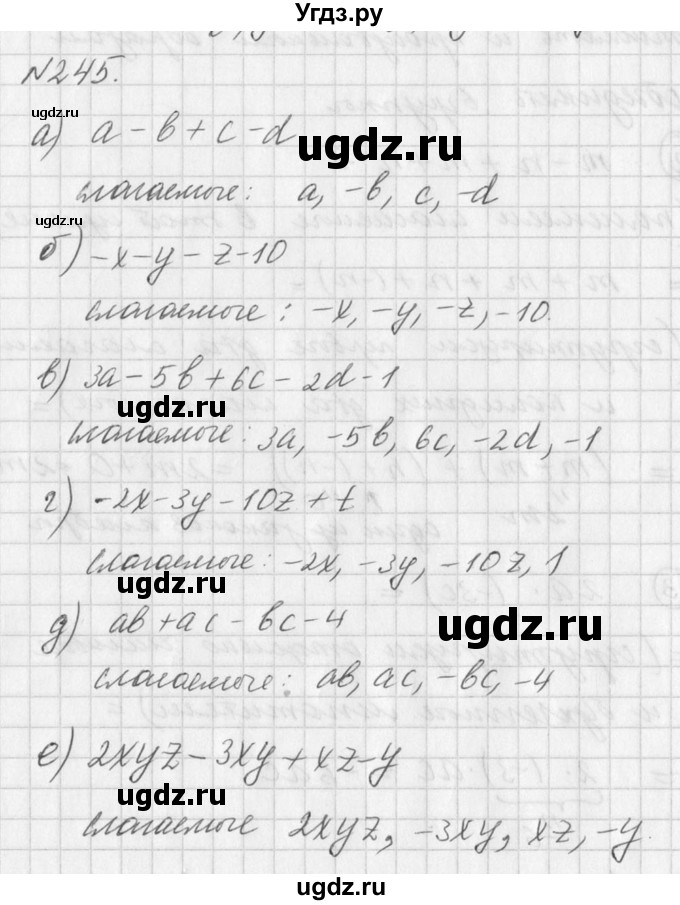 Угдз.ру
№245.
ugdz.ru
а) a - b + c - d
ugdz.ru
слагаемые: a, -b, c, -d
ugdz.ru
б) -x-y-z-10
слагаемые: -x, -y, -z, -10.
в) 3a-5b+6c-2d-1
ugdz.ru
слагаемые: 3a, -5b, 6c, -2d, -1
г) -2x-3y-10z+t
слагаемые: -2x, -3y, -10z, 1
ugdz.ru
д) ab+ac-bc-4
ugdz.ru
слагаемые: ab, ac, -bc, -4
е) 2xyz-3xy+xz-y
ugdz.ru
слагаемые 2xyz, -3xy, xz, -y.
ugdz.ru